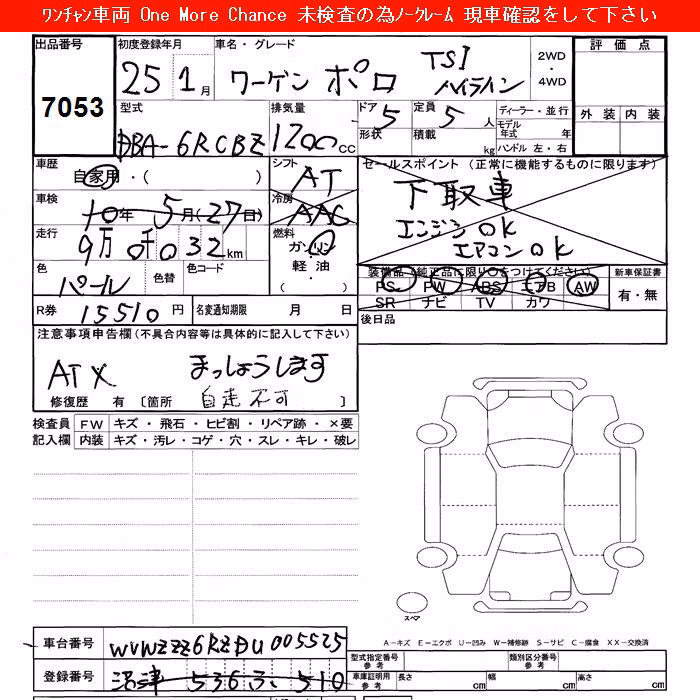 ﾜﾝﾁｬﾝ車両 One More Chance 未検査の為ﾉｰｸﾚｰﾑ 現車確認をして下さい
出品番号 7053
初度登録年月 25 1月
車名・グレード ワーゲン ポロ TSI ハイライン
2WD・4WD
評価点
外装 内装
型式 DBA-6RCBZ
排気量 1200cc
ドア 5 形状
定員 5人 積載 kg
ディーラー・並行
モデル年式 年
ハンドル 左・右
車歴 自家用・( )
シフト AT
セールスポイント (正常に機能するものに限ります)
下取車
エンジンOK
エアコンOK
車検 10年 5月(27日)
冷房 AAC
走行 9万 0千032km
燃料 ガソリン・軽油・( )
色 パール 色替 色コード
装備品(純正品に限り○をつけてください)
PS PW ABS エアB AW
SR ナビ TV カワ
新車保証書 有・無
R券 15510円
名変通知期限 月 日
後日品
注意事項申告欄(不具合内容等は具体的に記入して下さい)
ATX まっしょうします
自走不可
修復歴 有 〔箇所 〕
検査員記入欄 FW キズ・飛石・ヒビ割・リペア跡・×要
内装 キズ・汚レ・コゲ・穴・スレ・キレ・破レ
スペア
A-キズ E-エクボ U-凹み W-補修跡 S-サビ C-腐食 XX-交換済
車台番号 WVWZZZ6RZDU005525
登録番号 沼津 536 510
型式指定番号 参考
類別区分番号 参考
車庫証明用 参考 長さ cm 幅 cm 高さ cm